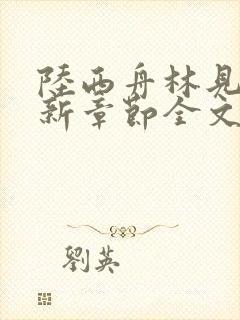 陸西舟林見
新章節全文
劉英